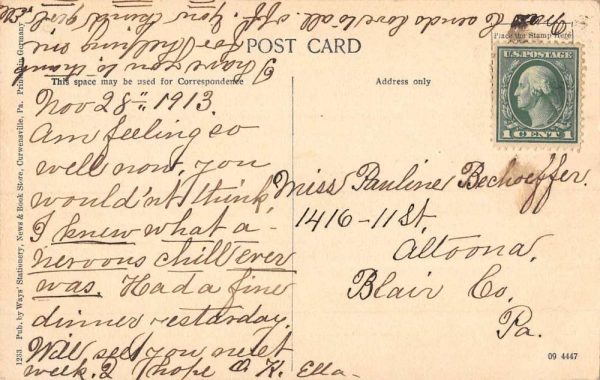 POST CARD
This space may be used for Correspondence
Address only
Place the Stamp Here
U.S. POSTAGE
1 CENT 1
Nov 28" 1913.
Am feeling so
well now, you
would'nt think
I knew what a
nervous chill ever
was. Had a fine
dinner yesterday.
Will see you next
week. I hope O.K. Ella
I have you to thank
for helping me
Miss Pauline Bechoeffer.
1416-11 St.
Altoona,
Blair Co.
Pa.
09 4447
1233 Pub. by Ways' Stationery, News & Book Store, Curwensville, Pa. Printed in Germany